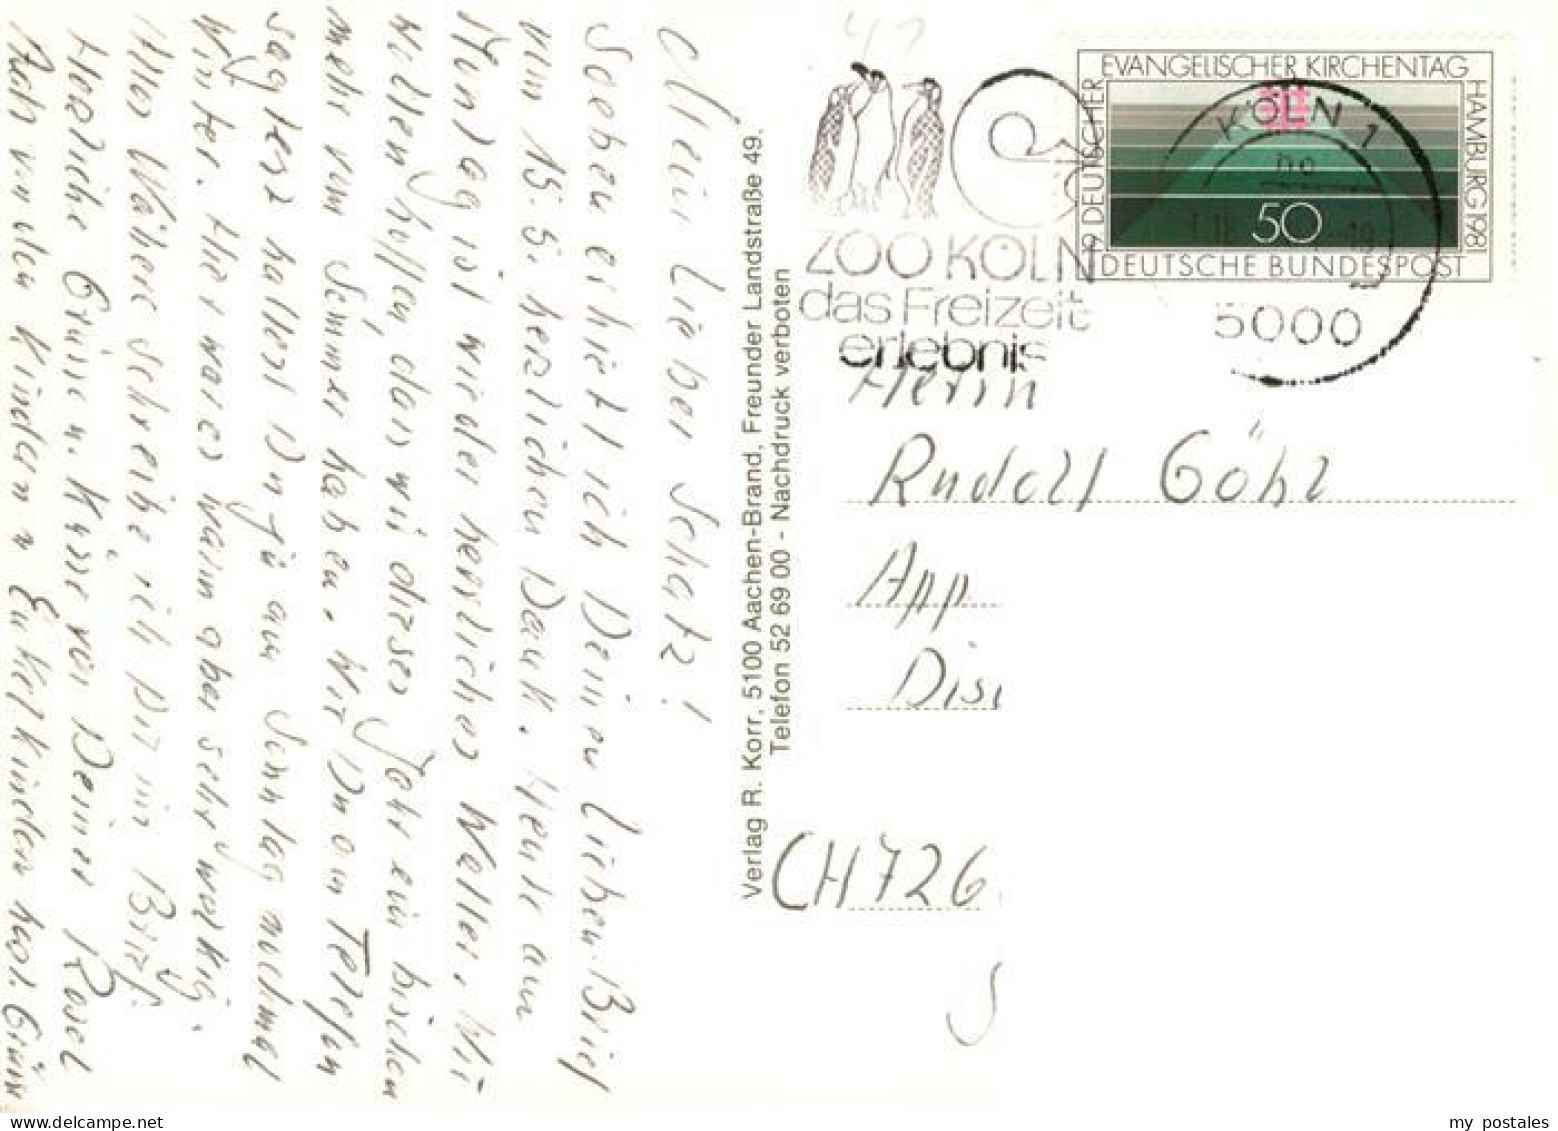 Mein lieber Schatz!
Soeben erhielt ich Deinen lieben Brief
vom 15.5. herzlichen Dank. Heute am
Montag ist wieder herrliches Wetter. Wir
wollen hoffen, dass wir dieses Jahr ein bischen
mehr vom Sommer haben. Wie Du am Telefon
sagtest hattest Du ja am Sonntag nochmal
Winter. Hier war es warm aber sehr wolkig.
Alles Nähere schreibe ich Dir im Brief.
Herzliche Grüsse u. Küsse von Deiner Rosel
Auch von den Kindern u Enkelkindern herzl. Grüsse
Verlag R. Korr, 5100 Aachen-Brand, Freunder Landstraße 49.
Telefon 52 69 00 - Nachdruck verboten
41
ZOO KÖLN
das Freizeit
erlebnis
19 DEUTSCHER
EVANGELISCHER KIRCHENTAG
HAMBURG 1981
50
DEUTSCHE BUNDESPOST
KÖLN 1
5000
Herrn
Rudolf Göhl
App
Dis
CH 726
S
my postales